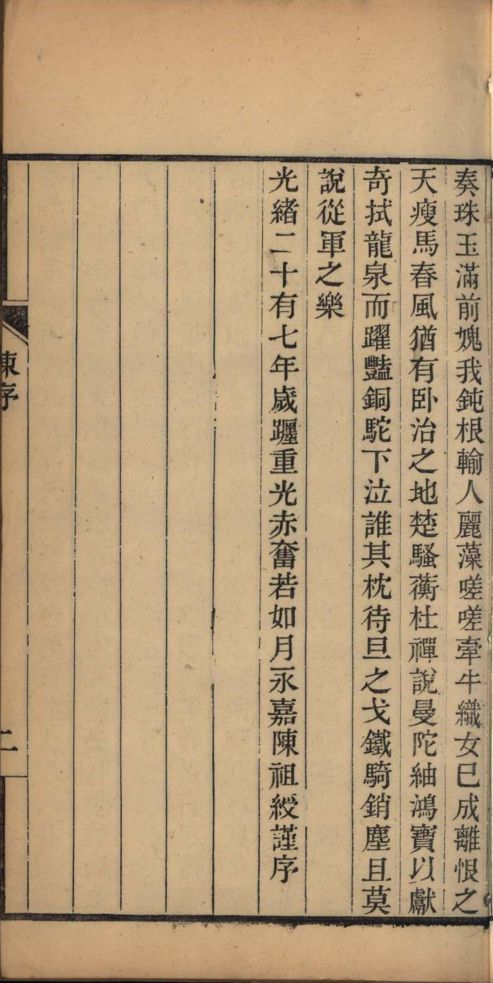 奏珠玉滿前媿我鈍根輸人麗藻嗟嗟牽牛織女已成離恨之
天瘦馬春風猶有卧治之地楚騷蘅杜禪說曼陀紬鴻寶以獻
奇拭龍泉而躍豔銅駝下泣誰其枕待旦之戈鐵騎銷塵且莫
說從軍之樂
光緒二十有七年歲躔重光赤奮若如月永嘉陳祖綬謹序
陳序
二